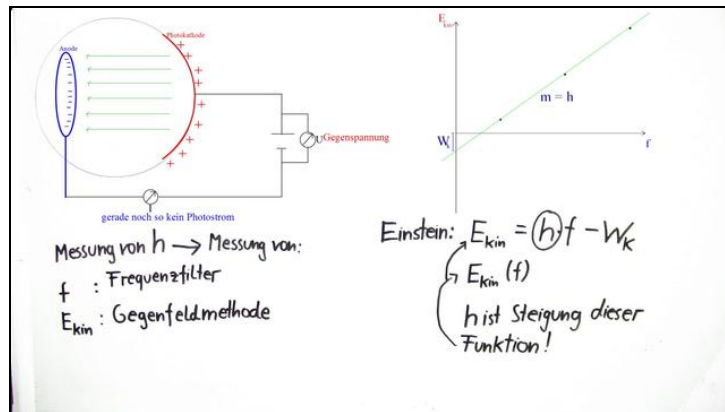 Anode
Photokathode
U Gegenspannung
gerade noch so kein Photostrom
Messung von h → Messung von:
f : Frequenzfilter
E_kin : Gegenfeldmethode
E_kin
m = h
W_k
f
Einstein: E_kin = h f - W_K
E_kin (f)
h ist Steigung dieser
Funktion!